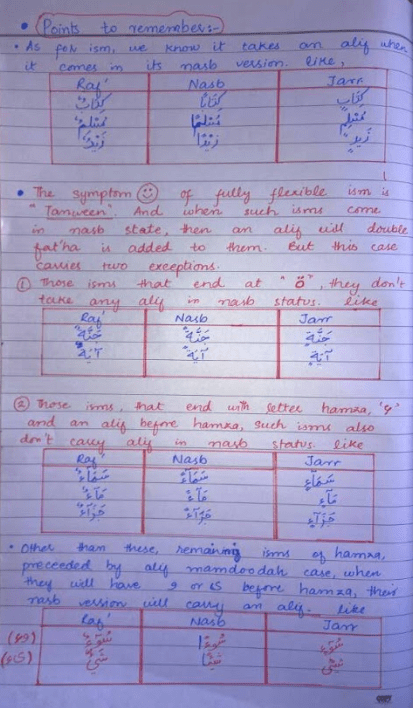 • Points to remember:-
• As per ism, we know it takes an alif when
it comes in its nasb version. like,
Raf' Nasb Jarr
كِتَابٌ كِتَابًا كِتَابٍ
مُسْلِمٌ مُسْلِمًا مُسْلِمٍ
زَيْدٌ زَيْدًا زَيْدٍ
• The symptom ☺ of fully flexible ism is
"Tanween". And when such isms come
in nasb state, then an alif will double
fat'ha is added to them. But this case
carries two exceptions.
① Those isms that end at "ة", they don't
take any alif in nasb status. like
Raf' Nasb Jarr
جَنَّةٌ جَنَّةً جَنَّةٍ
آيَةٌ آيَةً آيَةٍ
② Those isms, that end with letter hamza, 'ء'
and an alif before hamza, such isms also
don't carry alif in nasb status. like
Raf' Nasb Jarr
سَمَآءٌ سَمَآءً سَمَآءٍ
مَآءٌ مَآءً مَآءٍ
جَزَآءٌ جَزَآءً جَزَآءٍ
• Other than these, remaining isms of hamza,
preceeded by alif mamdoodah case, when
they will have و or ی before hamza, their
nasb version will carry an alif. like
Raf' Nasb Jarr
(وء) سُوْءٌ سُوْءًا سُوْءٍ
(یء) شَيْءٌ شَيْئًا شَيْءٍ